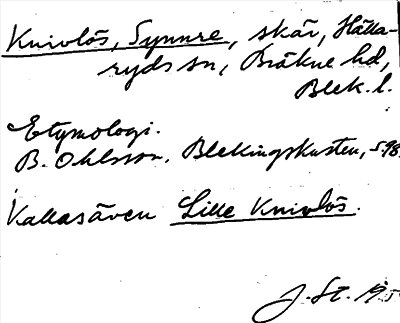 Knivlös, Synnre, skär, Hälla-
ryds sn, Bräkne hd,
Blek. l.
Etymologi.
B. Ohlsson, Blekingskusten, s. 98.
Kallas även Lille Knivlös.
J. St. 19